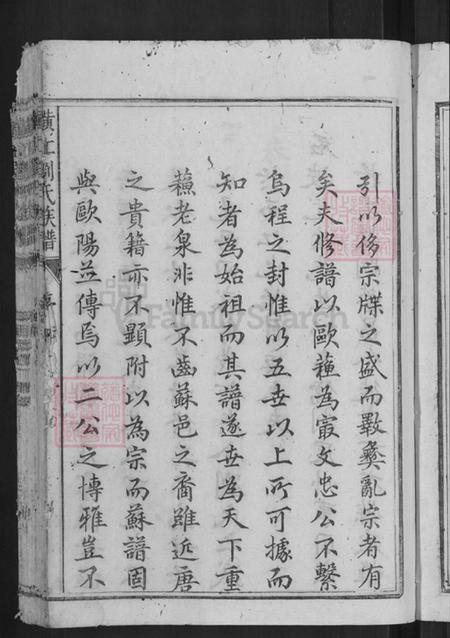 引以侈宗牒之盛而斁彝亂宗者有
矣夫修譜以歐蘓為寂文忠公不繫
烏程之封惟以五世以上所可據而
知者為始祖而其譜遂世為天下重
蘓老泉非惟不齒蘇邑之裔雖近唐
之貴籍亦不顯附以為宗而蘇譜固
與歐陽並傳焉以二公之博雅豈不
劉氏族譜
FamilySearch